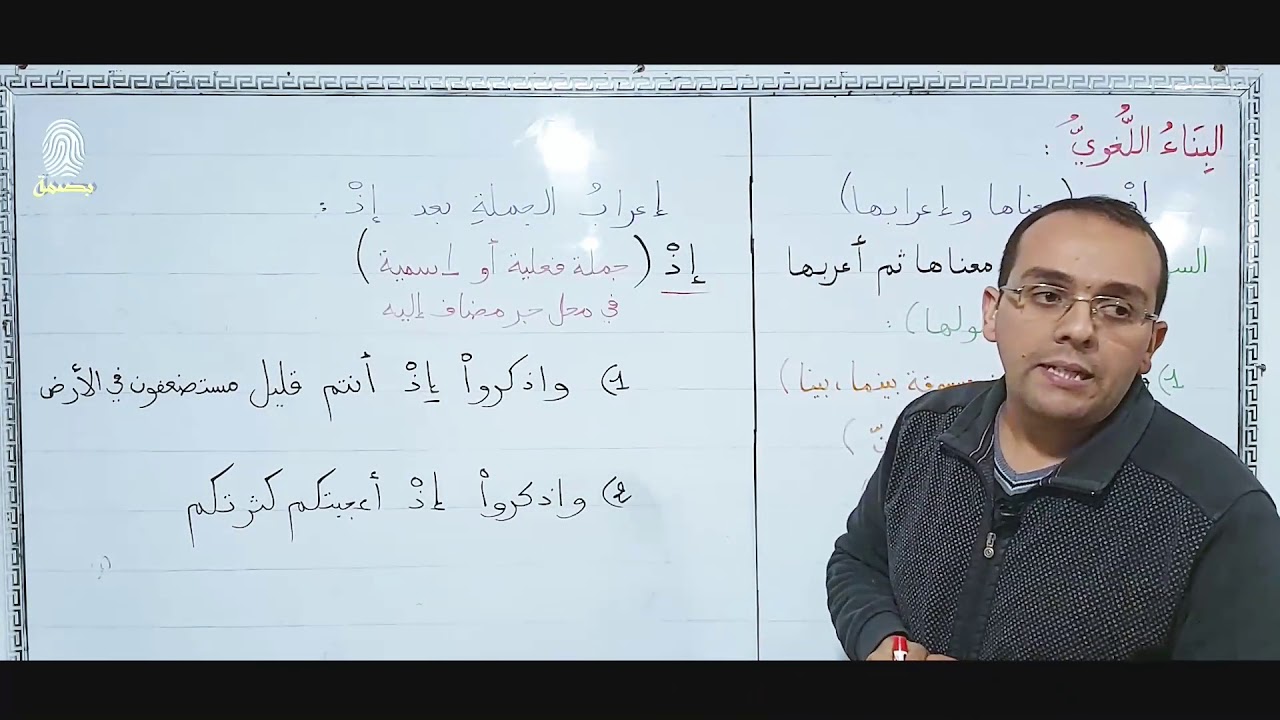 البِنَاءُ اللُّغويُّ :
(معناها وإعرابها)
معناها ثم أعربها
(بينما، بينا
إعرابُ الجملةِ بعد إذْ :
إذْ (جملة فعلية أو اسمية)
في محل جر مضاف إليه
1) واذكرواْ إذْ أنتم قليل مستضعفون في الأرض
2) واذكرواْ إذْ أعجبتكم كثرتكم
بصمة